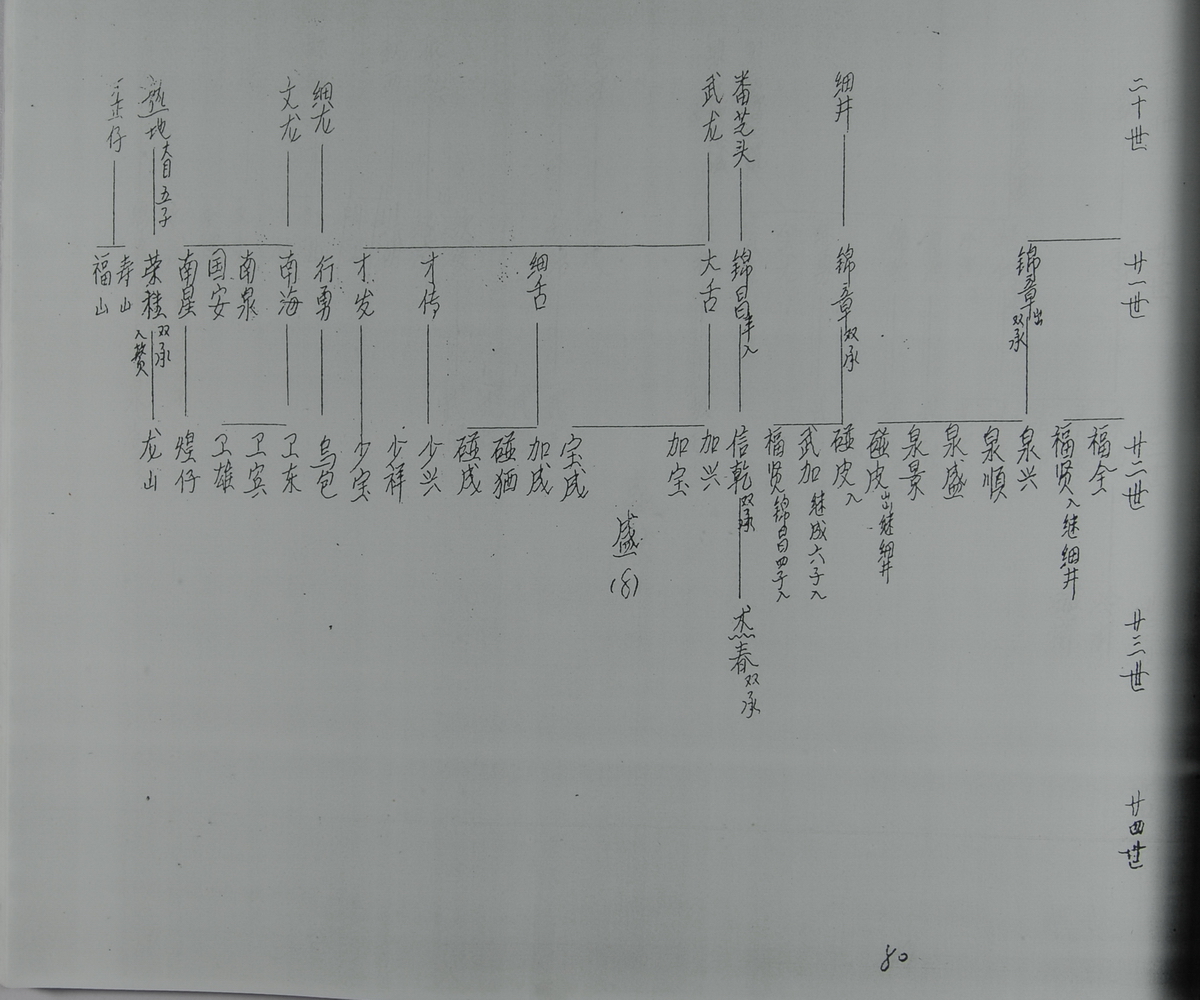 二十世
细井
番芝头
武龙
细龙
文龙
盛地 大目五子
正仔
廿一世
锦章 出 双承
锦章 双承
锦昌 丰入
大舌
细舌
才传
才发
行勇
南海
南泉
国安
南星
荣桂 双承 入赘
寿山
福山
廿二世
福全
福贤 入继细井
泉兴
泉顺
泉盛
泉景
碰皮 出继细井
碰皮 入
武加 继成六子入
福贤 锦昌四子入
信乾 双承
加兴
加宝
宝成
加成
碰猫
碰成
少兴
少祥
少宝
乌包
卫东
卫宾
卫雄
煌仔
龙山
盛
(8)
廿三世
杰春 双承
廿四世
80